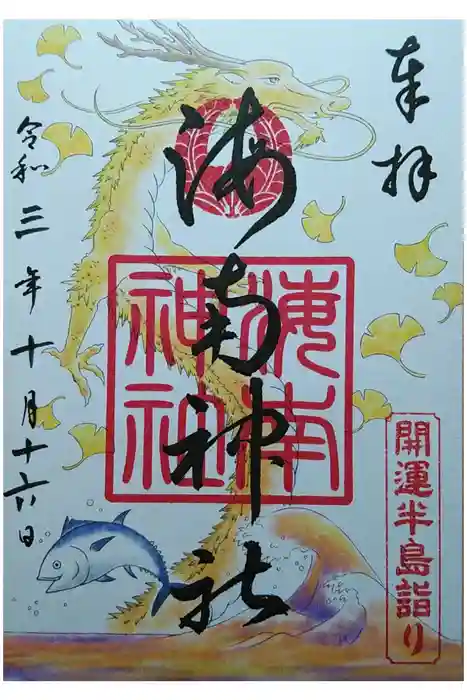 奉拝
海南神社
海南神社
開運半島詣り
令和三年十月十六日